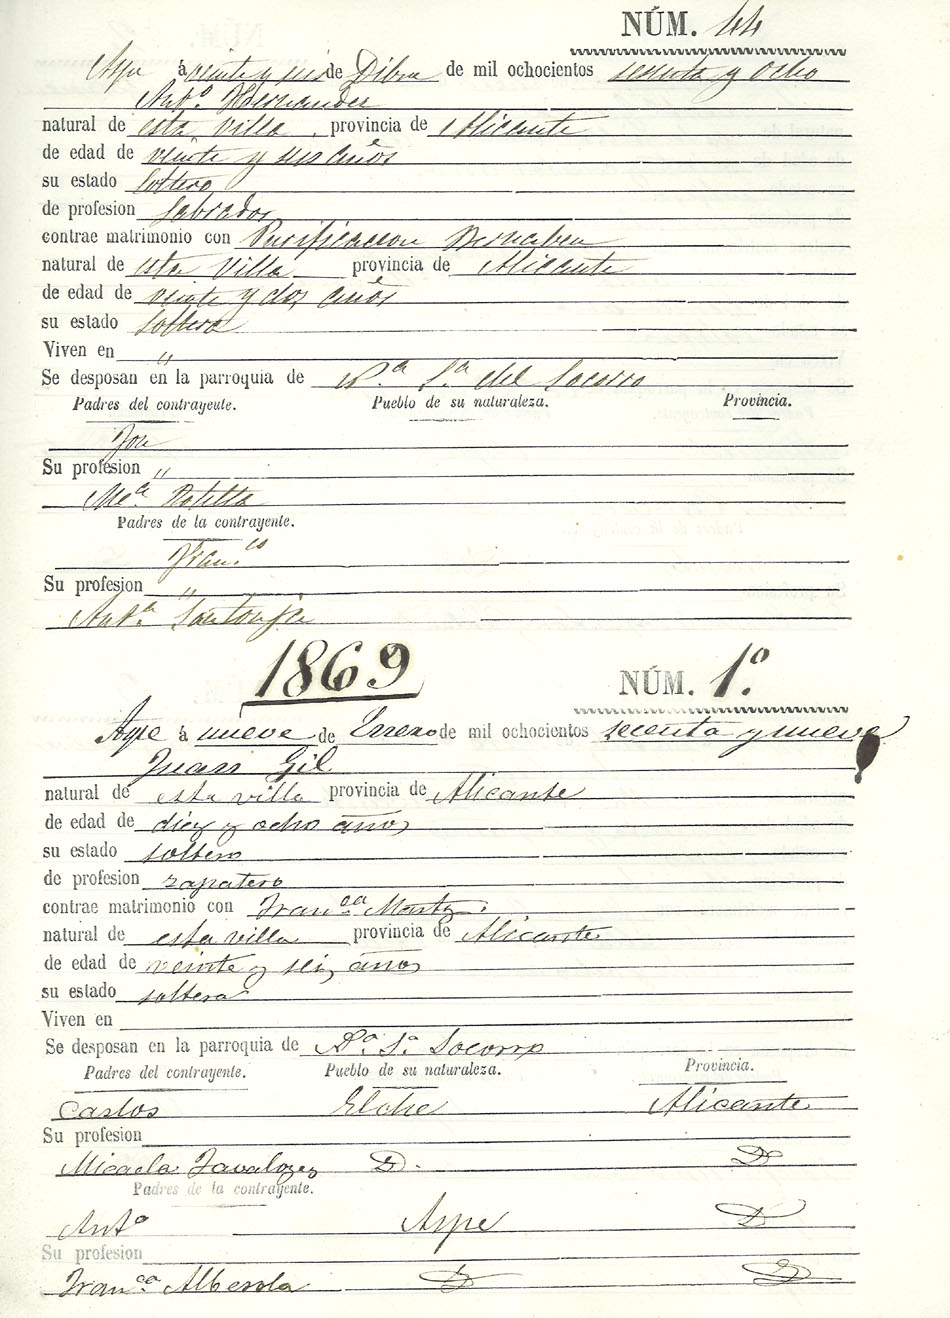 NÚM. 44
Aspe á veinte y seis de Dibre de mil ochocientos sesenta y ocho
Antº Hernandez
natural de esta villa , provincia de Alicante
de edad de veinte y seis años
su estado soltero
de profesion labrador
contrae matrimonio con Purificacion Bernabeu
natural de esta villa provincia de Alicante
de edad de veinte y dos años
su estado soltera
Viven en "
Se desposan en la parroquia de Nª Sª del Socorro
Padres del contrayente. Pueblo de su naturaleza. Provincia.
José
Su profesion "
Mª Botella
Padres de la contrayente.
Franco
Su profesion "
Antª Santonja
1869 NÚM. 1º
Aspe á nueve de Enero de mil ochocientos secenta y nueve
Juan Gil
natural de esta villa provincia de Alicante
de edad de diez y ocho años
su estado soltero
de profesion zapatero
contrae matrimonio con Franca Martz.
natural de esta villa provincia de Alicante
de edad de veinte y seis años
su estado soltera
Viven en
Se desposan en la parroquia de Nª Sª Socorro
Padres del contrayente. Pueblo de su naturaleza. Provincia.
Carlos Elche Alicante
Su profesion
Micaela Javaloyes D. D
Padres de la contrayente.
Antº Aspe D
Su profesion
Franca Alberola D D